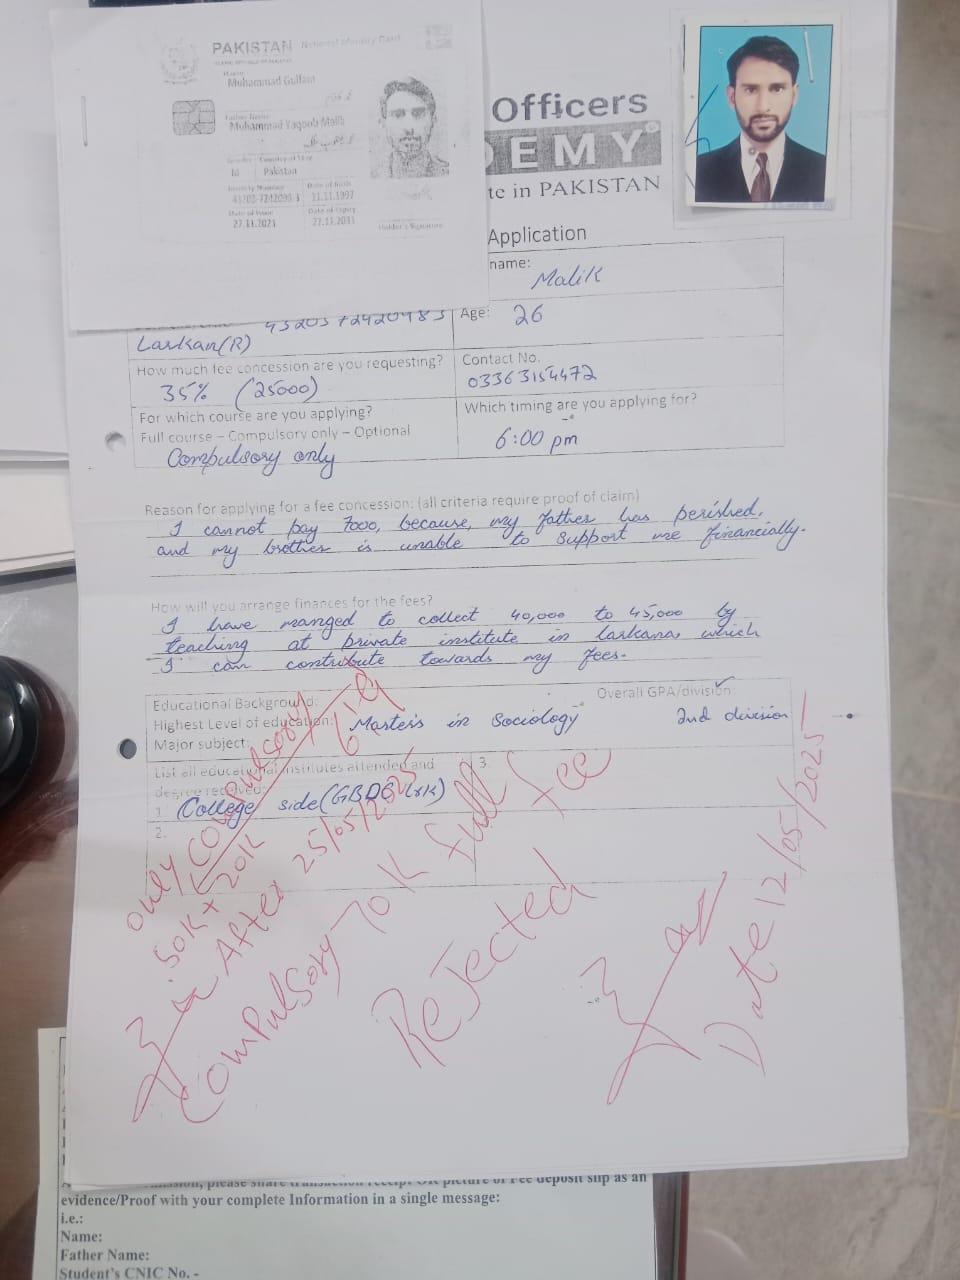 PAKISTAN National Identity Card
ISLAMIC REPUBLIC OF PAKISTAN
Name
Muhammad Gullam
Father Name
Muhammad Yaqoob Malik
Gender Country of Stay
M Pakistan
Identity Number Date of Birth
11.11.1997
Date of Issue Date of Expiry
27.11.2021 27.11.2031
Holder's Signature
Officers
DEMY
te in PAKISTAN
Application
name:
Malik
Age: 26
Larkan(R)
How much fee concession are you requesting?
35% (25000)
Contact No.
03363154472
For which course are you applying?
Full course – Compulsory only – Optional
Compulsory only
Which timing are you applying for?
6:00 pm
Reason for applying for a fee concession: (all criteria require proof of claim)
I cannot pay 7000, because, my father has perished.
and my brother is unable to support me financially.
How will you arrange finances for the fees?
I have manged to collect 40,000 to 45,000 by
teaching at private institute in larkana, which
I can contribute towards my fees.
Educational Background:
Overall GPA/division:
Highest Level of education: Master's in Sociology 2nd division
Major subject:
List all educational institutes attended and
degree received:
1. College side (GBDC Lrk)
2.
3.
only Compulsory
50K+
20K
After 25/05/2025
Compulsory 70K full fee
Rejected
Date 12/05/2025
please share transaction receipt OR picture of Fee deposit slip as an
evidence/Proof with your complete Information in a single message:
i.e.:
Name:
Father Name:
Student's CNIC No. -